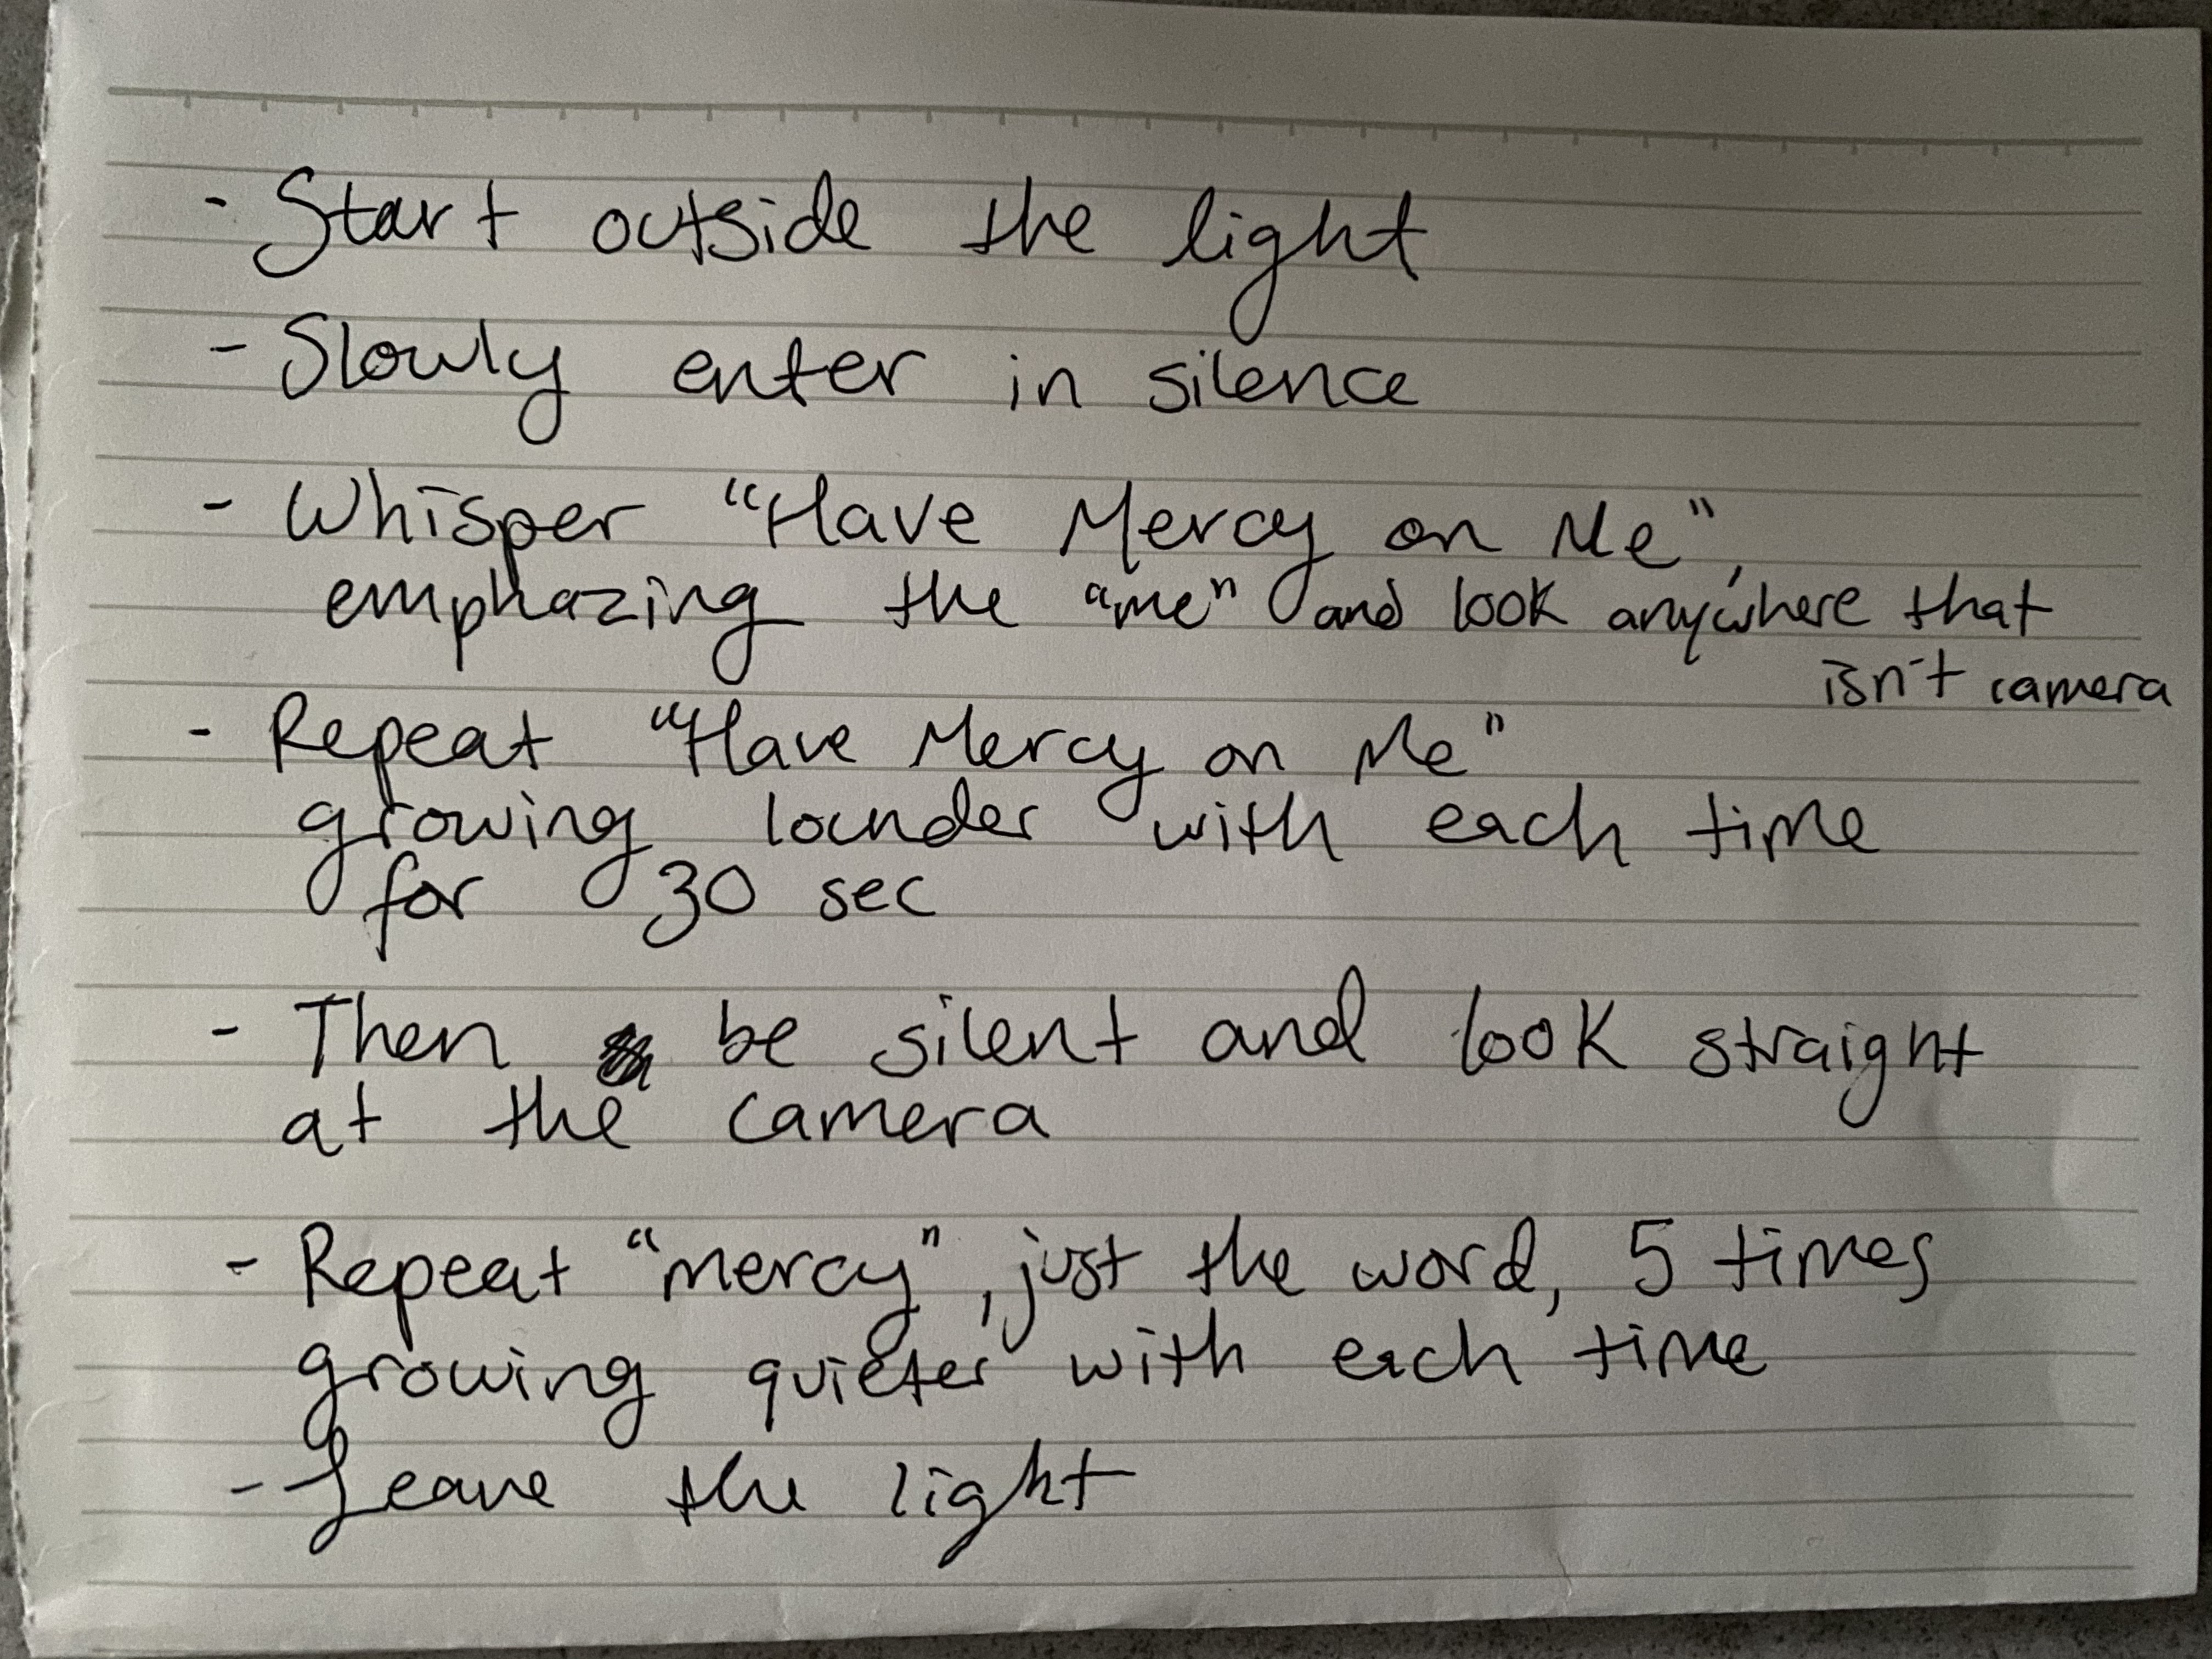 - Start outside the light
- Slowly enter in silence
- Whisper "Have Mercy on Me",
emphazing the "me" and look anywhere that
isn't camera
- Repeat "Have Mercy on Me"
growing lounder with each time
for 30 sec
- Then be silent and look straight
at the camera
- Repeat "mercy", just the word, 5 times
growing quieter with each time
- Leave the light